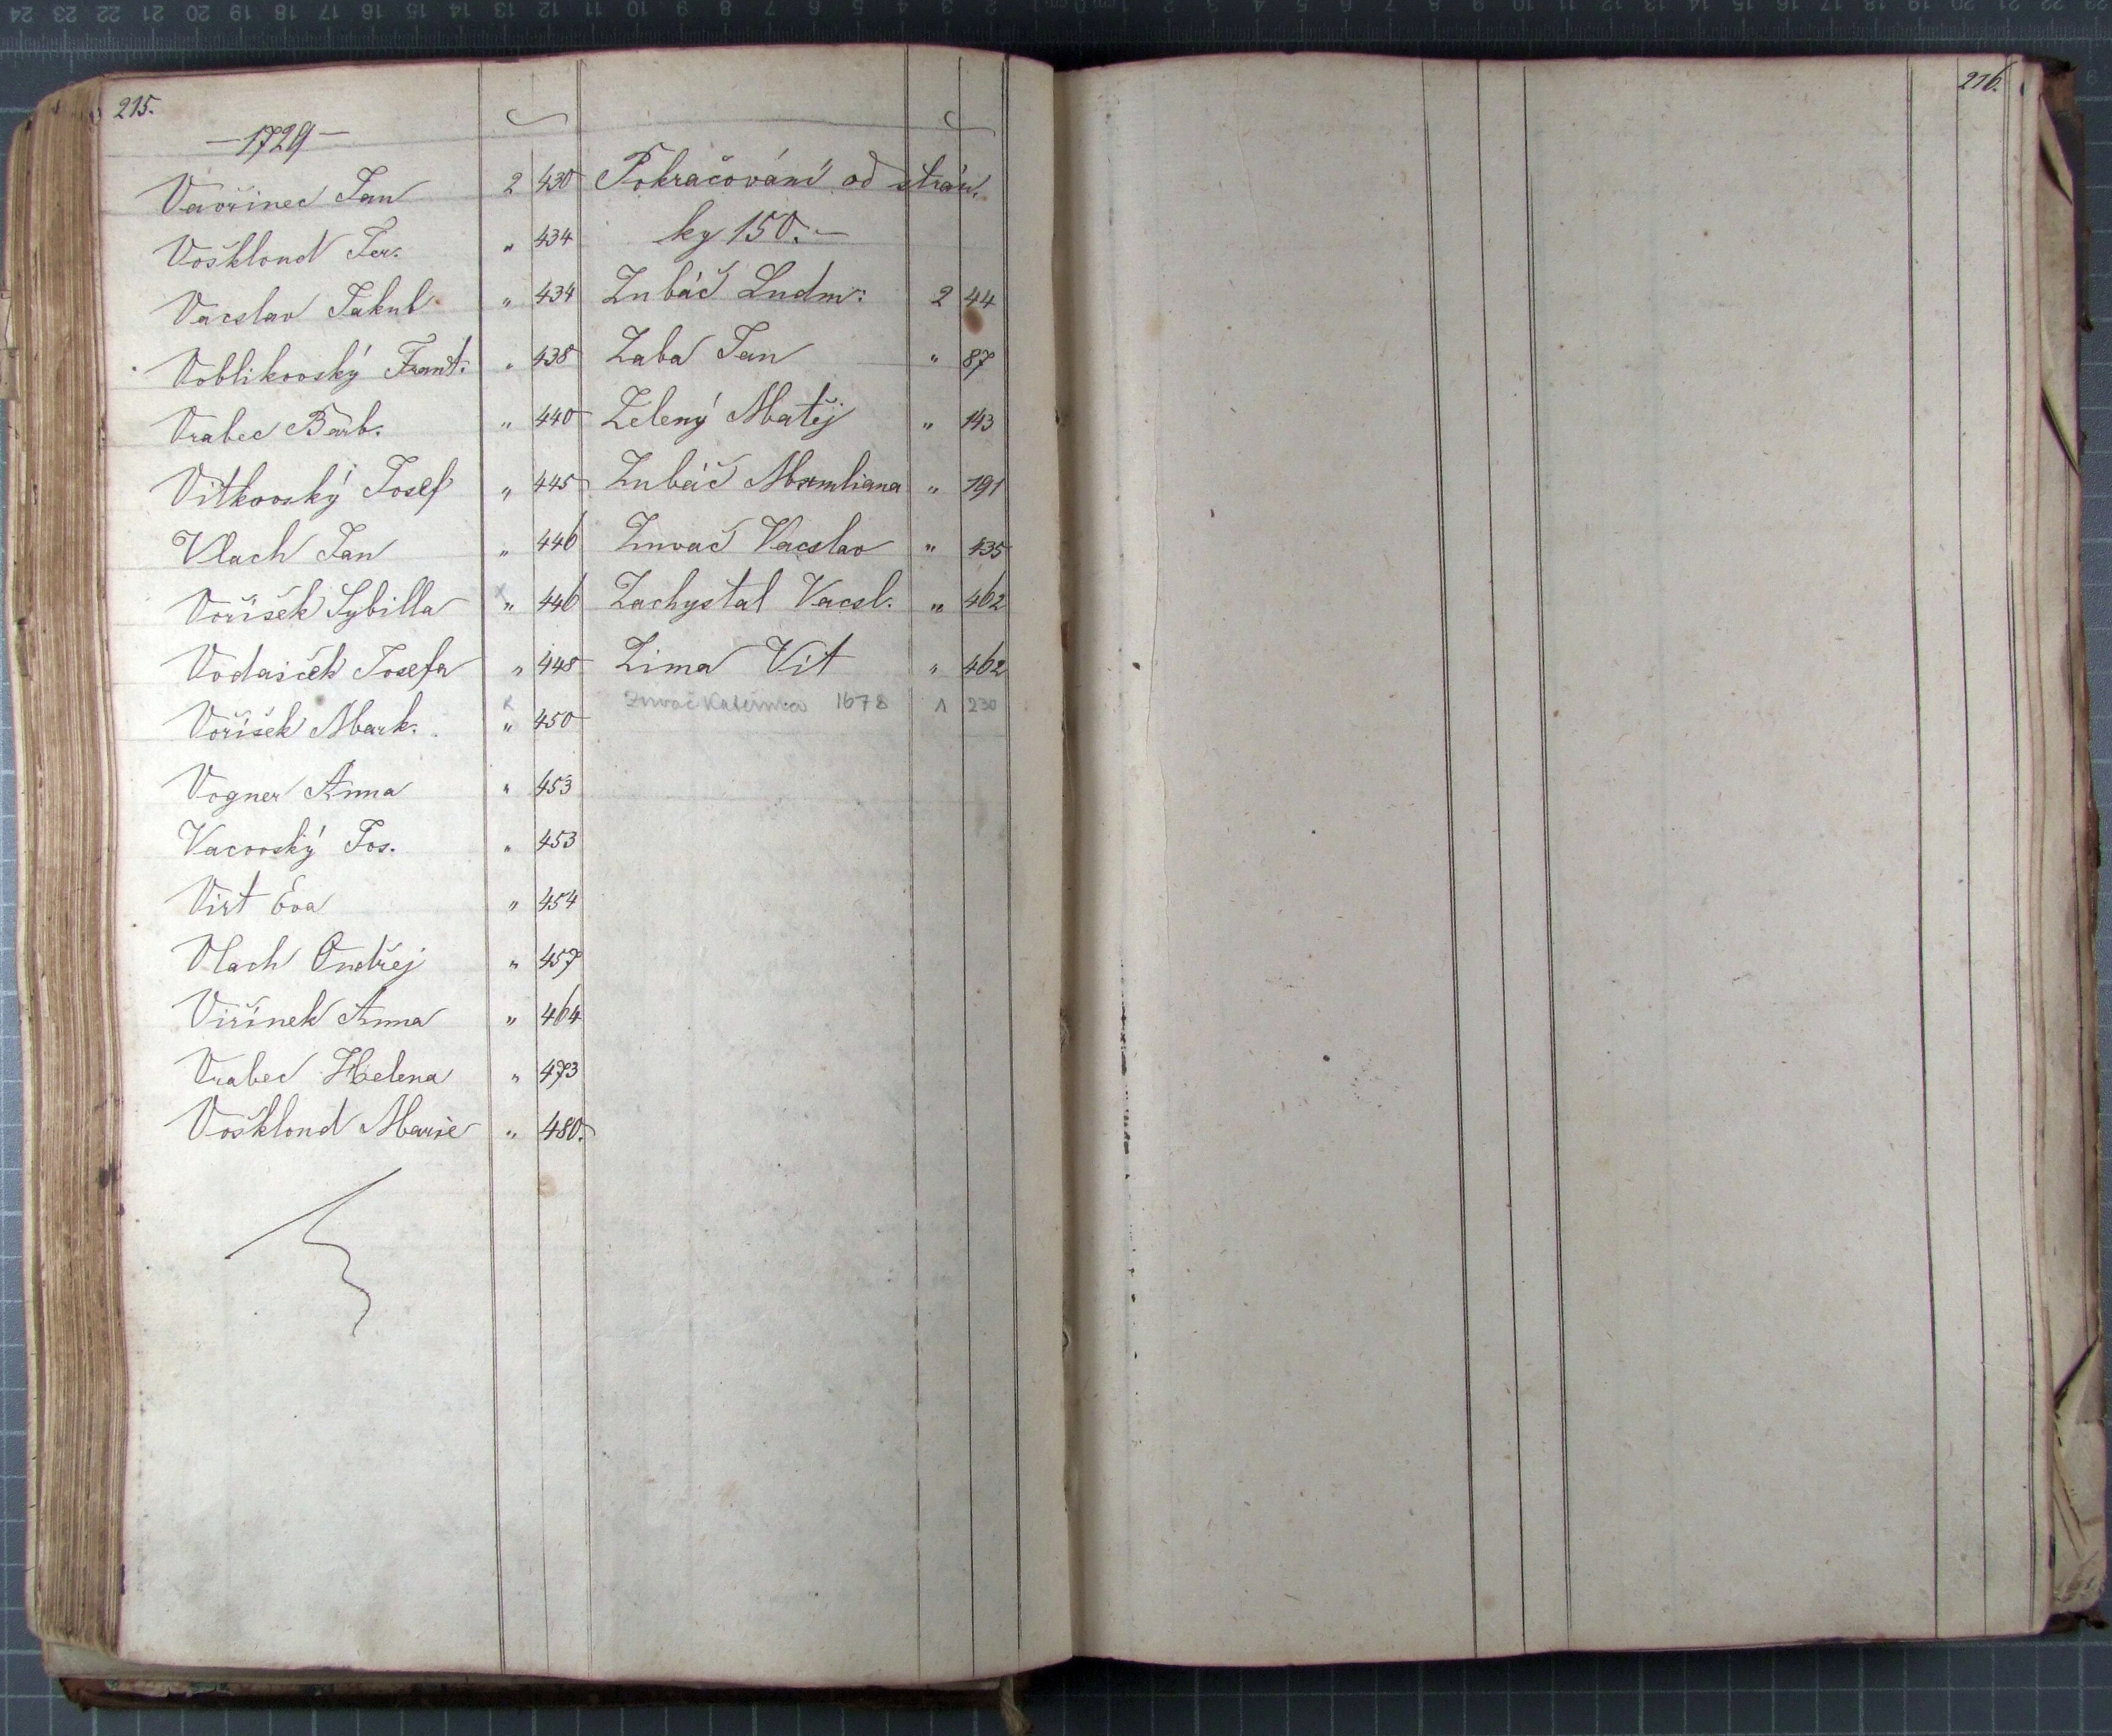 215.
—1729—
Vavřinec Jan 2 430
Vošklond Fer. „ 434
Vacslav Jakub „ 434
Voblikovský Frant. „ 438
Vrabec Barb. „ 440
Vitkovský Josef „ 445
Vlach Jan „ 446
Voříšek Sybilla x „ 446
Vodaiček Josefa „ 448
Voříšek Mark. x „ 450
Vogner Anna „ 453
Vacovský Jos. „ 453
Virt Eva „ 454
Vlach Ondřej „ 457
Viřínek Anna „ 464
Vrabec Helena „ 473
Vošklond Marie „ 480.
Pokračování od strán.
ky 150.—
Zubáč Ludm: 2 44
Zaba Jan „ 87
Zelený Matěj „ 143
Zubáč Mxmliana „ 191
Zuvač Vacslav „ 435
Zachystal Vacsl. „ 462
Zima Vit „ 462
Zuvač Kateřina 1678 1 230
216.